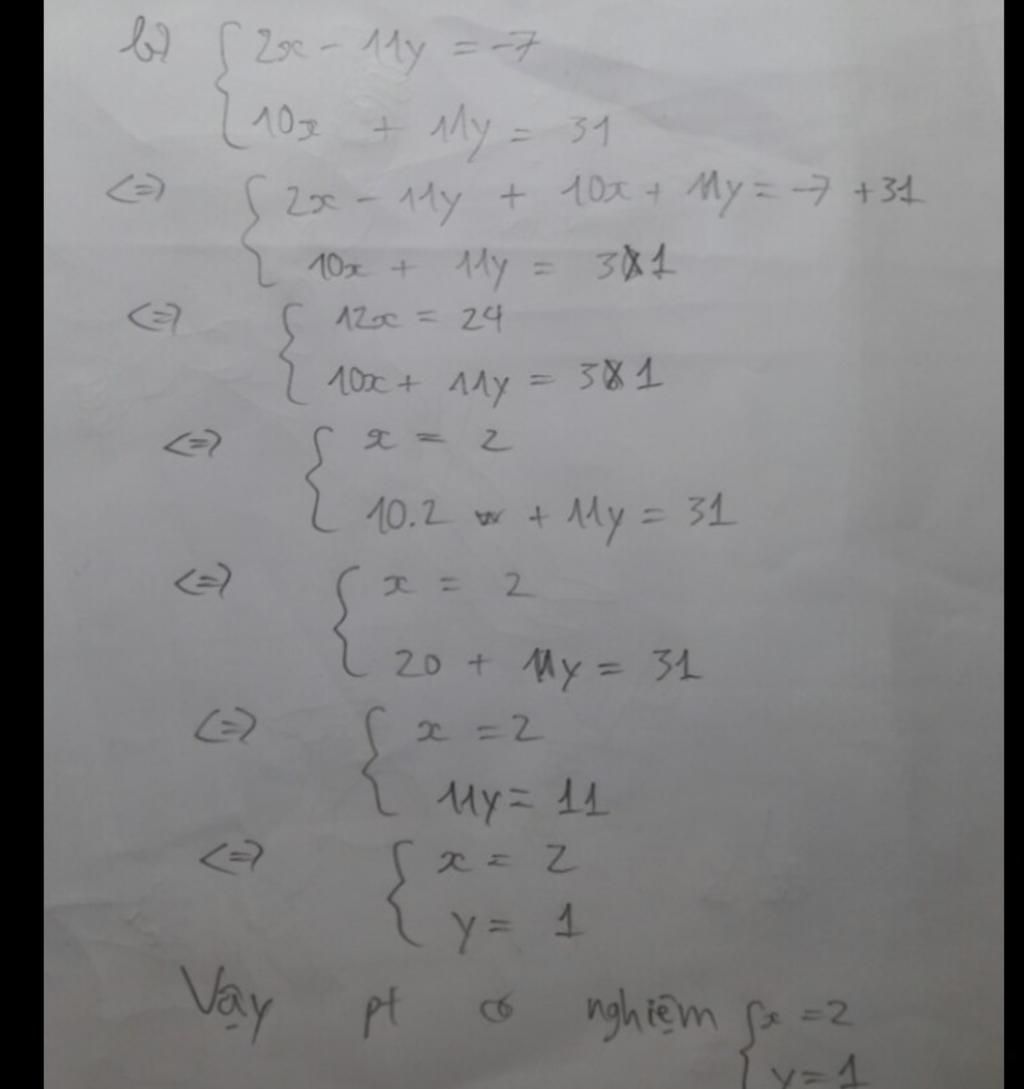 b) { 2x - 11y = -7
10x + 11y = 31
<=> { 2x - 11y + 10x + 11y = -7 + 31
10x + 11y = 31
<=> { 12x = 24
10x + 11y = 31
<=> { x = 2
10.2 + 11y = 31
<=> { x = 2
20 + 11y = 31
<=> { x = 2
11y = 11
<=> { x = 2
y = 1
Vậy pt có nghiệm { x = 2
y = 1